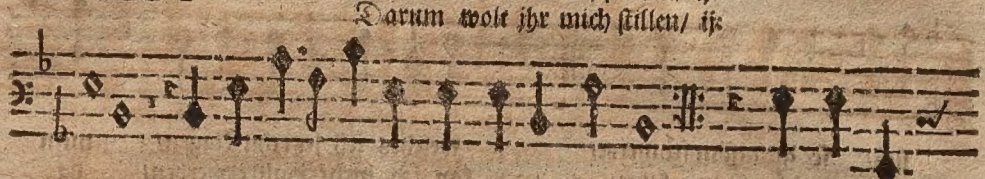 Darum wolt jhr mich stillen/ ij: